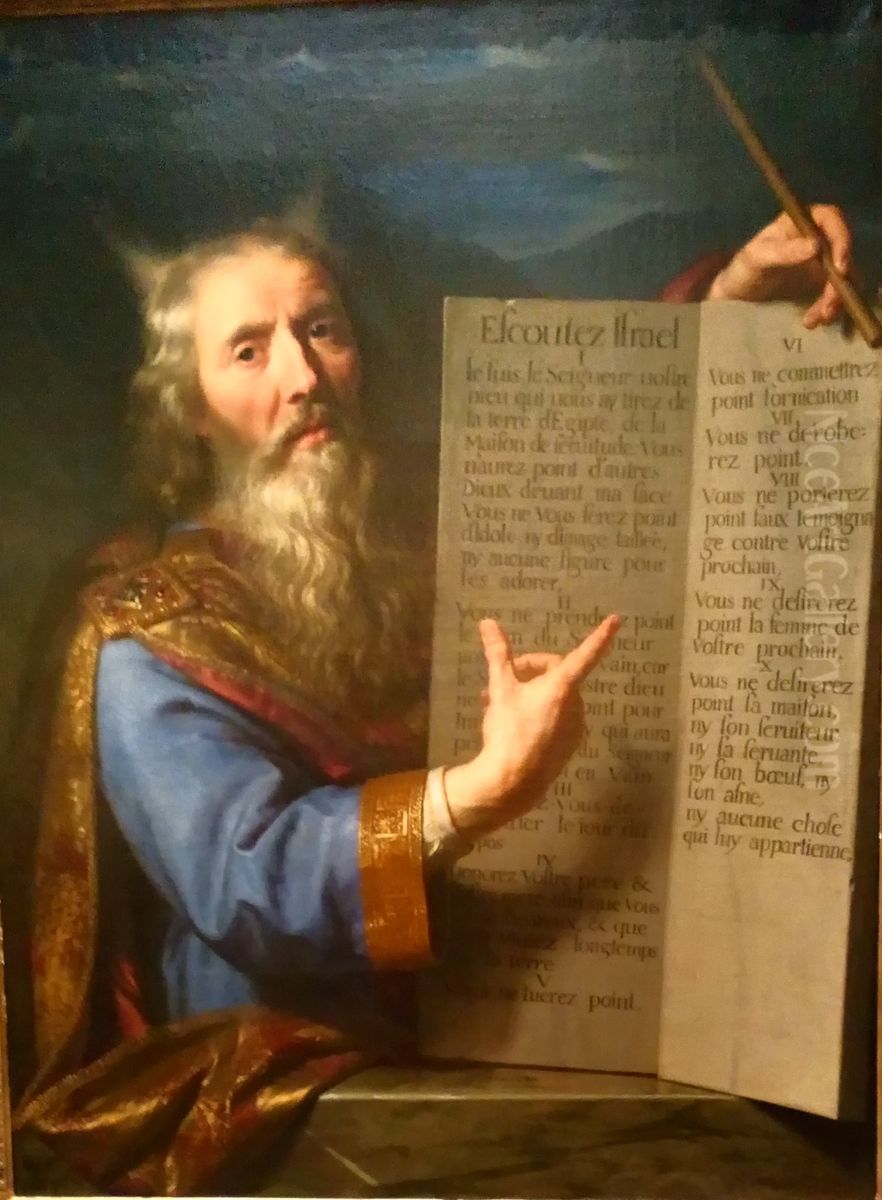 Eſcoutez Iſrael
I
Ie ſuis le Seigneur voſtre
Dieu qui vous ay tirez de
la terre d'Egipte de la
Maiſon de ſeruitude. Vous
n'aurez point d'autres
Dieux deuant ma face
Vous ne Vous ferez point
d'Idole ny d'image taillée,
ny aucune figure pour
les adorer,
II
Vous ne prendrez point
du Seigneur
vain, car
voſtre dieu
point pour
qui aura
du Seigneur
en Vain
III
Vous
le iour du
IV
Honorez Voſtre pere &
que Vous
& que
longtemps
la terre
V
ne tuerez point.
VI
Vous ne commettrez
point fornication
VII
Vous ne dérobe-
rez point.
VIII
Vous ne porterez
point faux temoigna
ge contre Voſtre
prochain,
IX
Vous ne deſirerez
point la femme de
Voſtre prochain,
X
Vous ne deſirerez
point ſa maiſon
ny ſon ſeruiteur
ny ſa ſeruante,
ny ſon bœuf, ny
ſon aſne,
ny aucune choſe
qui luy appartienne,